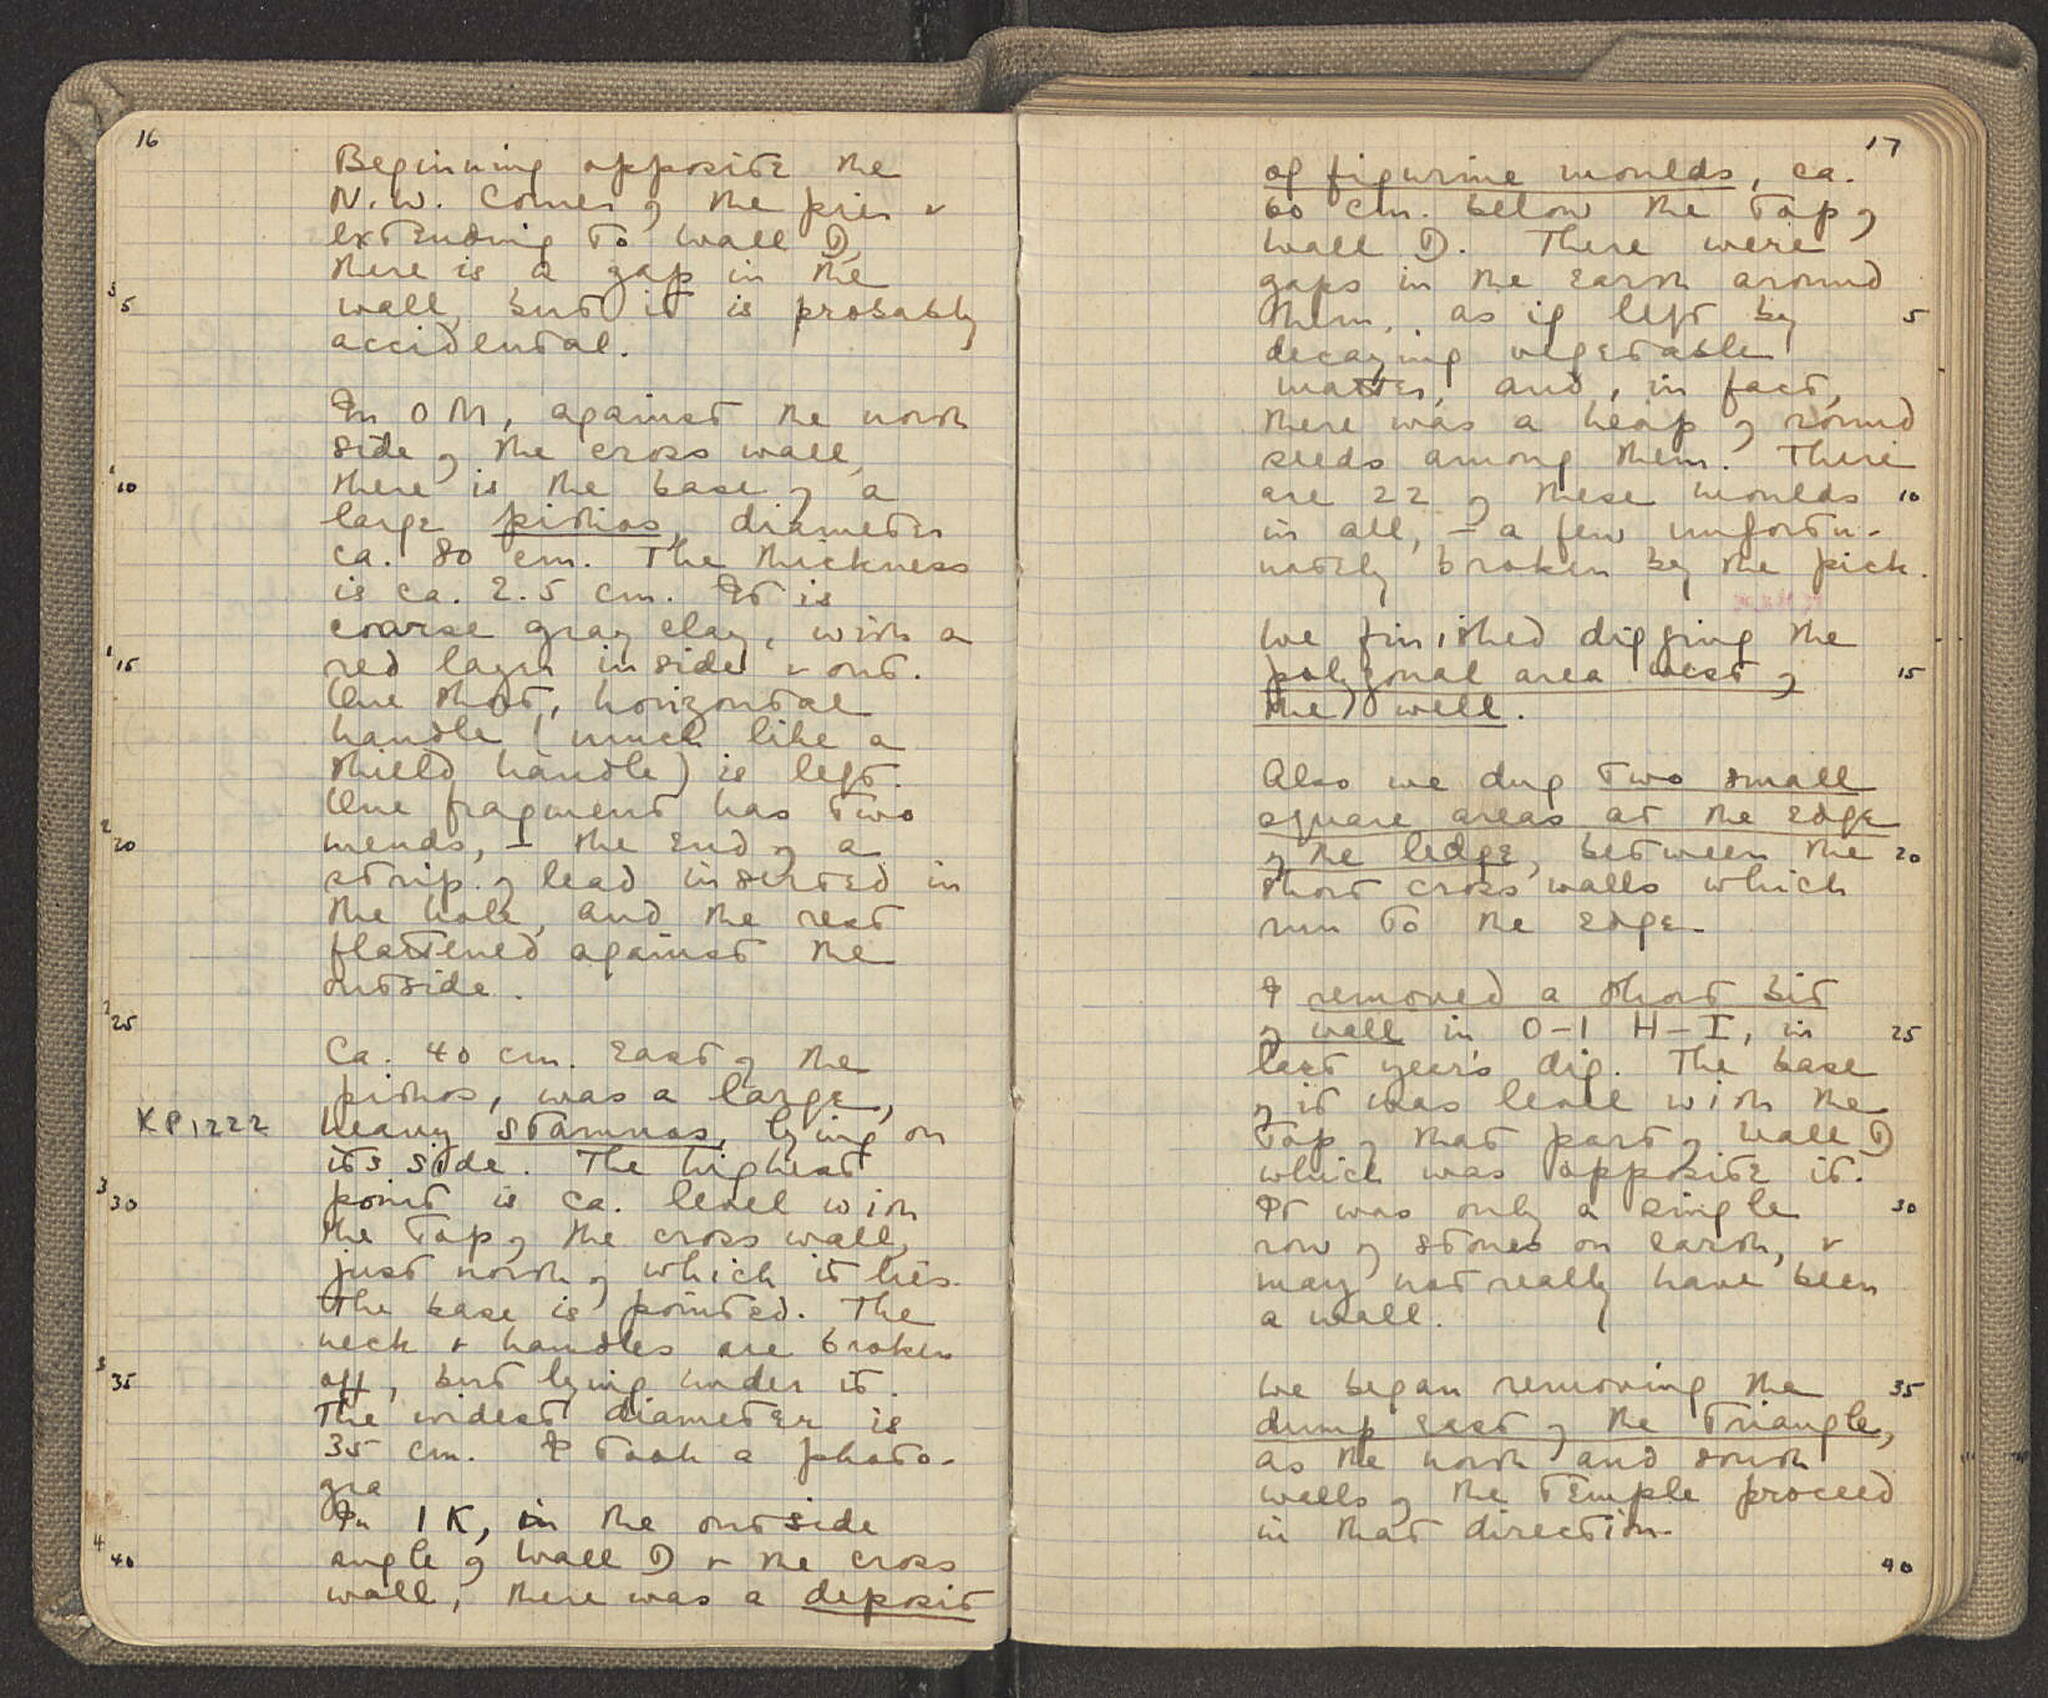 16
Beginning opposite the
N.W. corner of the pier &
extending to Wall D,
there is a gap in the
5 wall, but it is probably
accidental.
In O M, against the north
side of the cross wall,
10 there is the base of a
large pithos, diameter
ca. 80 cm. The thickness
is ca. 2.5 cm. It is
coarse gray clay, with a
15 red layer inside & out.
One short, horizontal
handle (much like a
shield handle) is left.
One fragment has two
20 mends, – the end of a
strip of lead inserted in
the hole, and the rest
flattened against the
outside.
25
Ca. 40 cm. east of the
pithos, was a large,
KP1222 heavy stamnos, lying on
its side. The highest
30 point is ca. level with
the top of the cross wall,
just north of which it lies.
The base is pointed. The
neck & handles are broken
35 off, but lying under it.
The widest diameter is
35 cm. I took a photo-
gra
In 1 K, in the outside
40 angle of Wall D & the cross
wall, there was a deposit
17
of figurine moulds, ca.
60 cm. below the top of
Wall D. There were
gaps in the earth around
them, as if left by 5
decaying vegetable
matter, and, in fact,
there was a heap of round
seeds among them. There
are 22 of these moulds 10
in all, – a few unfortu-
nately broken by the pick.
We finished digging the
polygonal area west of 15
the well.
Also we dug two small
square areas at the edge
of the ledge, between the 20
short cross walls which
run to the edge.
I removed a short bit
of wall in O–1 H–I, in 25
last year's dig. The base
of it was level with the
top of that part of Wall D
which was opposite it.
It was only a single 30
row of stones on earth, &
may not really have been
a wall.
We began removing the 35
dump east of the Triangle,
as the north and south
walls of the Temple proceed
in that direction.
40